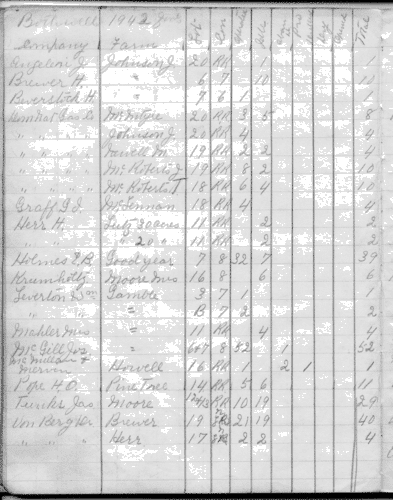 Bothwell 1942
Company Farm Lot Con Total
Johnson J 20 RR 1 1
Brewer H. " 6 7 10 10
Beerstock H. " 7 6 1 1
McIntyre 20 RR 3 5 8
" " " " Johnson J 20 RR 4 4
" " " " M. 19 RR 2 2 4
" " " " McRoberts J 19 RR 8 2 10
" " " " McRoberts T 18 RR 6 4 10
Graff G.J. McLennan 18 RR 4 4
Herr H. Lutz 30 acres 11 RR 2 2
" " " 20 " 11 RR 2 2
Holmes E.B. Goodyear 7 8 32 7 39
Krumholtz Moore Mrs 16 8 6 6
Leverton & Son Gamble 3 7 1 1
" " B 7 2 2
Mahler Mrs " 11 RR 4 4
McGill Jas " 6+7 8 52
McMillan &
Merven Howell 16 RR 1 2 1
Pope H O Pine Tree 14 RR 5 6 11
Tucker Jas Moore RR 10 19 29
Von Berg Hr Brewer 19 21 19 40
" " " Herr 17 2 2 4